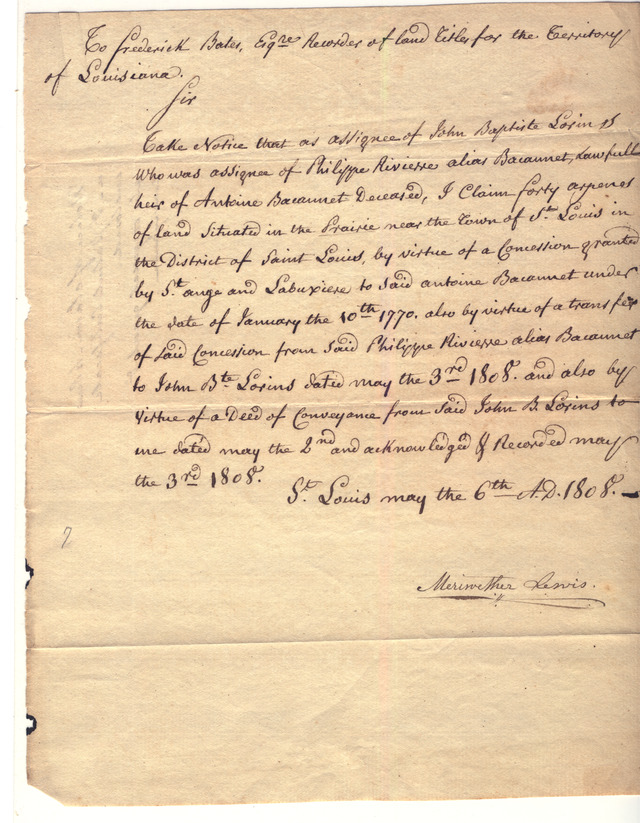 To Frederick Bates, Esqre Recorder of land Titles for the Territory
of Louisiana.
Sir
Take Notice that as assignee of John Baptiste Lorin
Who was assignee of Philippe Rivierre alias Bacannet, Lawfull
heir of Antoine Bacannet Deceased, I Claim forty arpens
of land Situated in the Prairie near the Town of St. Louis in
the District of Saint Louis, by virtue of a Concession granted
by St. ange and Labuxiere to Said antoine Bacannet under
the date of January the 10th 1770. also by virtue of a transfer
of said Concession from Said Philippe Rivierre alias Bacannet
to John Bte Lorins dated may the 3rd 1808. and also by
virtue of a Deed of Conveyance from Said John B. Lorins to
me dated may the 2nd and acknowledged & Recorded may
the 3rd 1808.
St. Louis may the 6th A.D. 1808.
Meriwether Lewis.